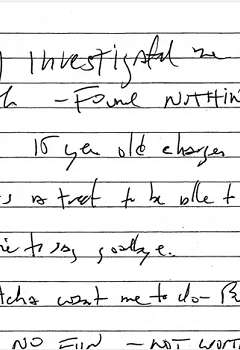 investigated me
- Found NOTHIN
10 year old charges
is no treat to be able t
e to say goodbye.
tchs want me to do -
NO FUN - NOT WORT